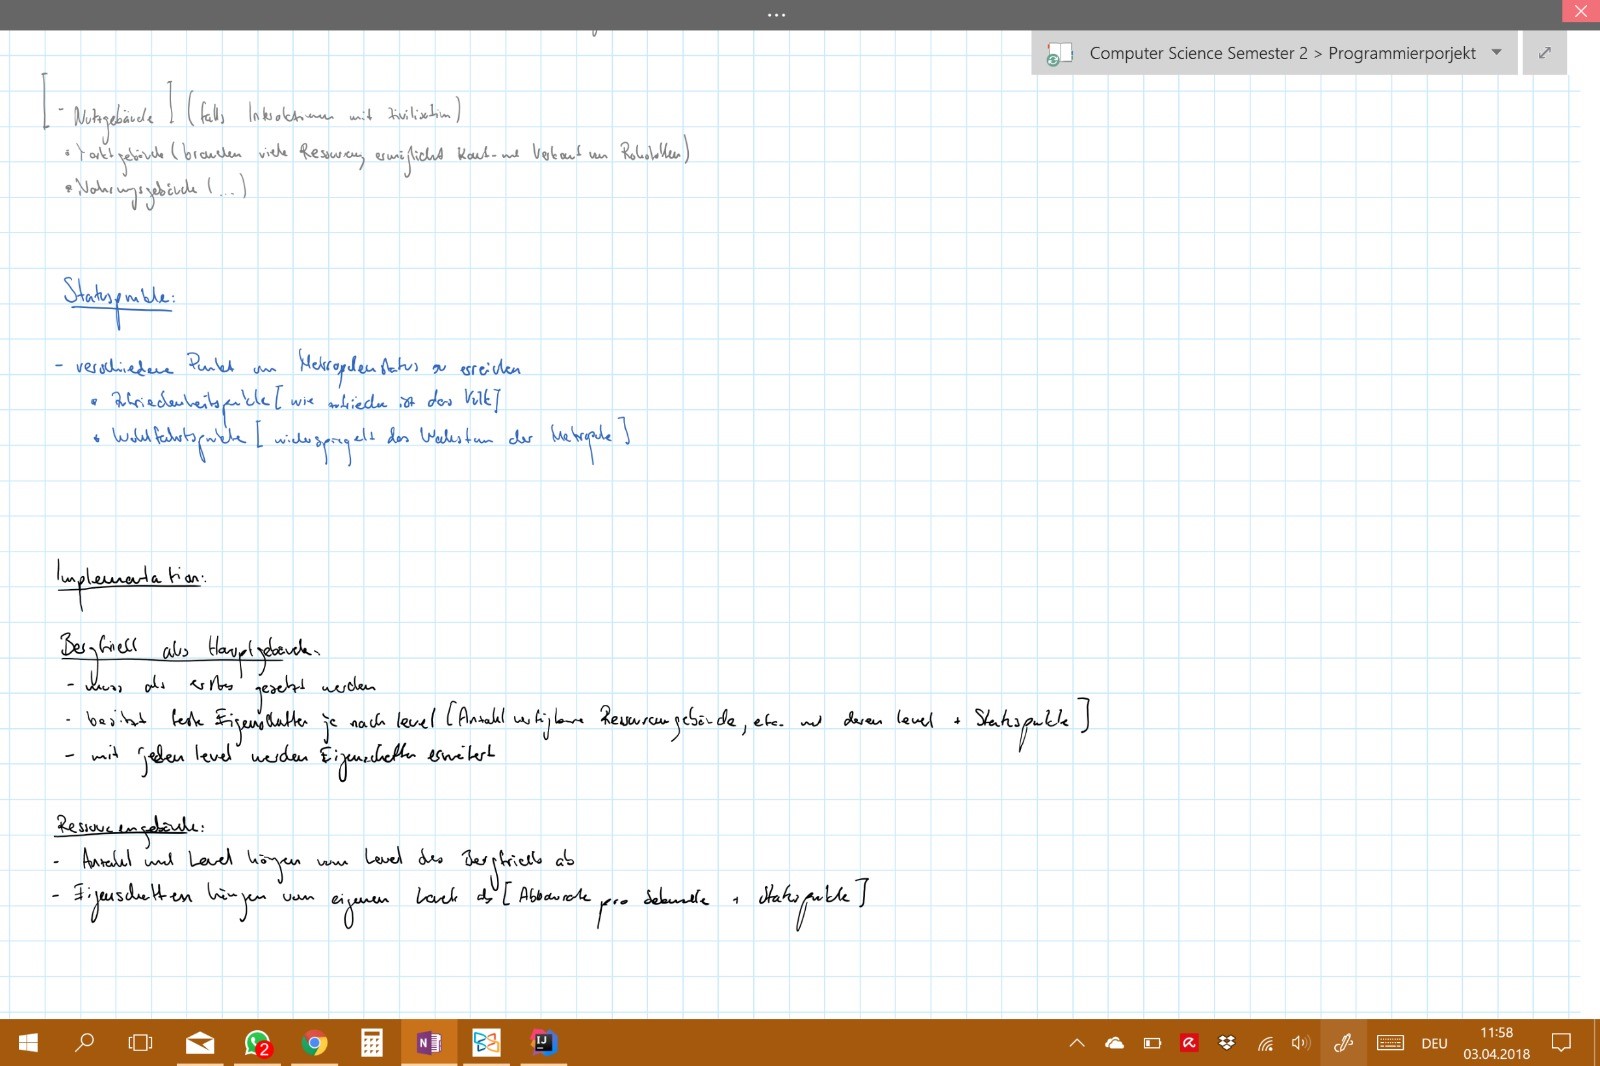 Computer Science Semester 2 > Programmierporjekt
[- Nutzgebäude] (falls Interaktionen mit Zivilisation)
• Marktgebäude (brauchen viele Resourcen, ermöglicht Kauf- und Verkauf von Rohstoffen)
• Nahrungsgebäude (...)
Statuspunkte:
- verschiedene Punkte um Metropolenstatus zu erreichen
• Zufriedenheitspunkte [wie zufrieden ist das Volk]
• Wohlfahrtspunkte [widerspiegelt das Wachstum der Metropole]
Implementation:
Bergfriell als Hauptgebäude:
- muss als erstes gesetzt werden
- besitzt feste Eigenschaften je nach level [Anzahl verfügbare Resourcengebäude, etc. und deren level + Statuspunkte]
- mit jedem level werden Eigenschaften erweitert
Ressourcengebäude:
- Anzahl und Level hängen vom Level des Bergfriells ab
- Eigenschaften hängen vom eigenen Level ab [Abbaurate pro Sekunde + Statuspunkte]
2
N
IJ
DEU
11:58
03.04.2018